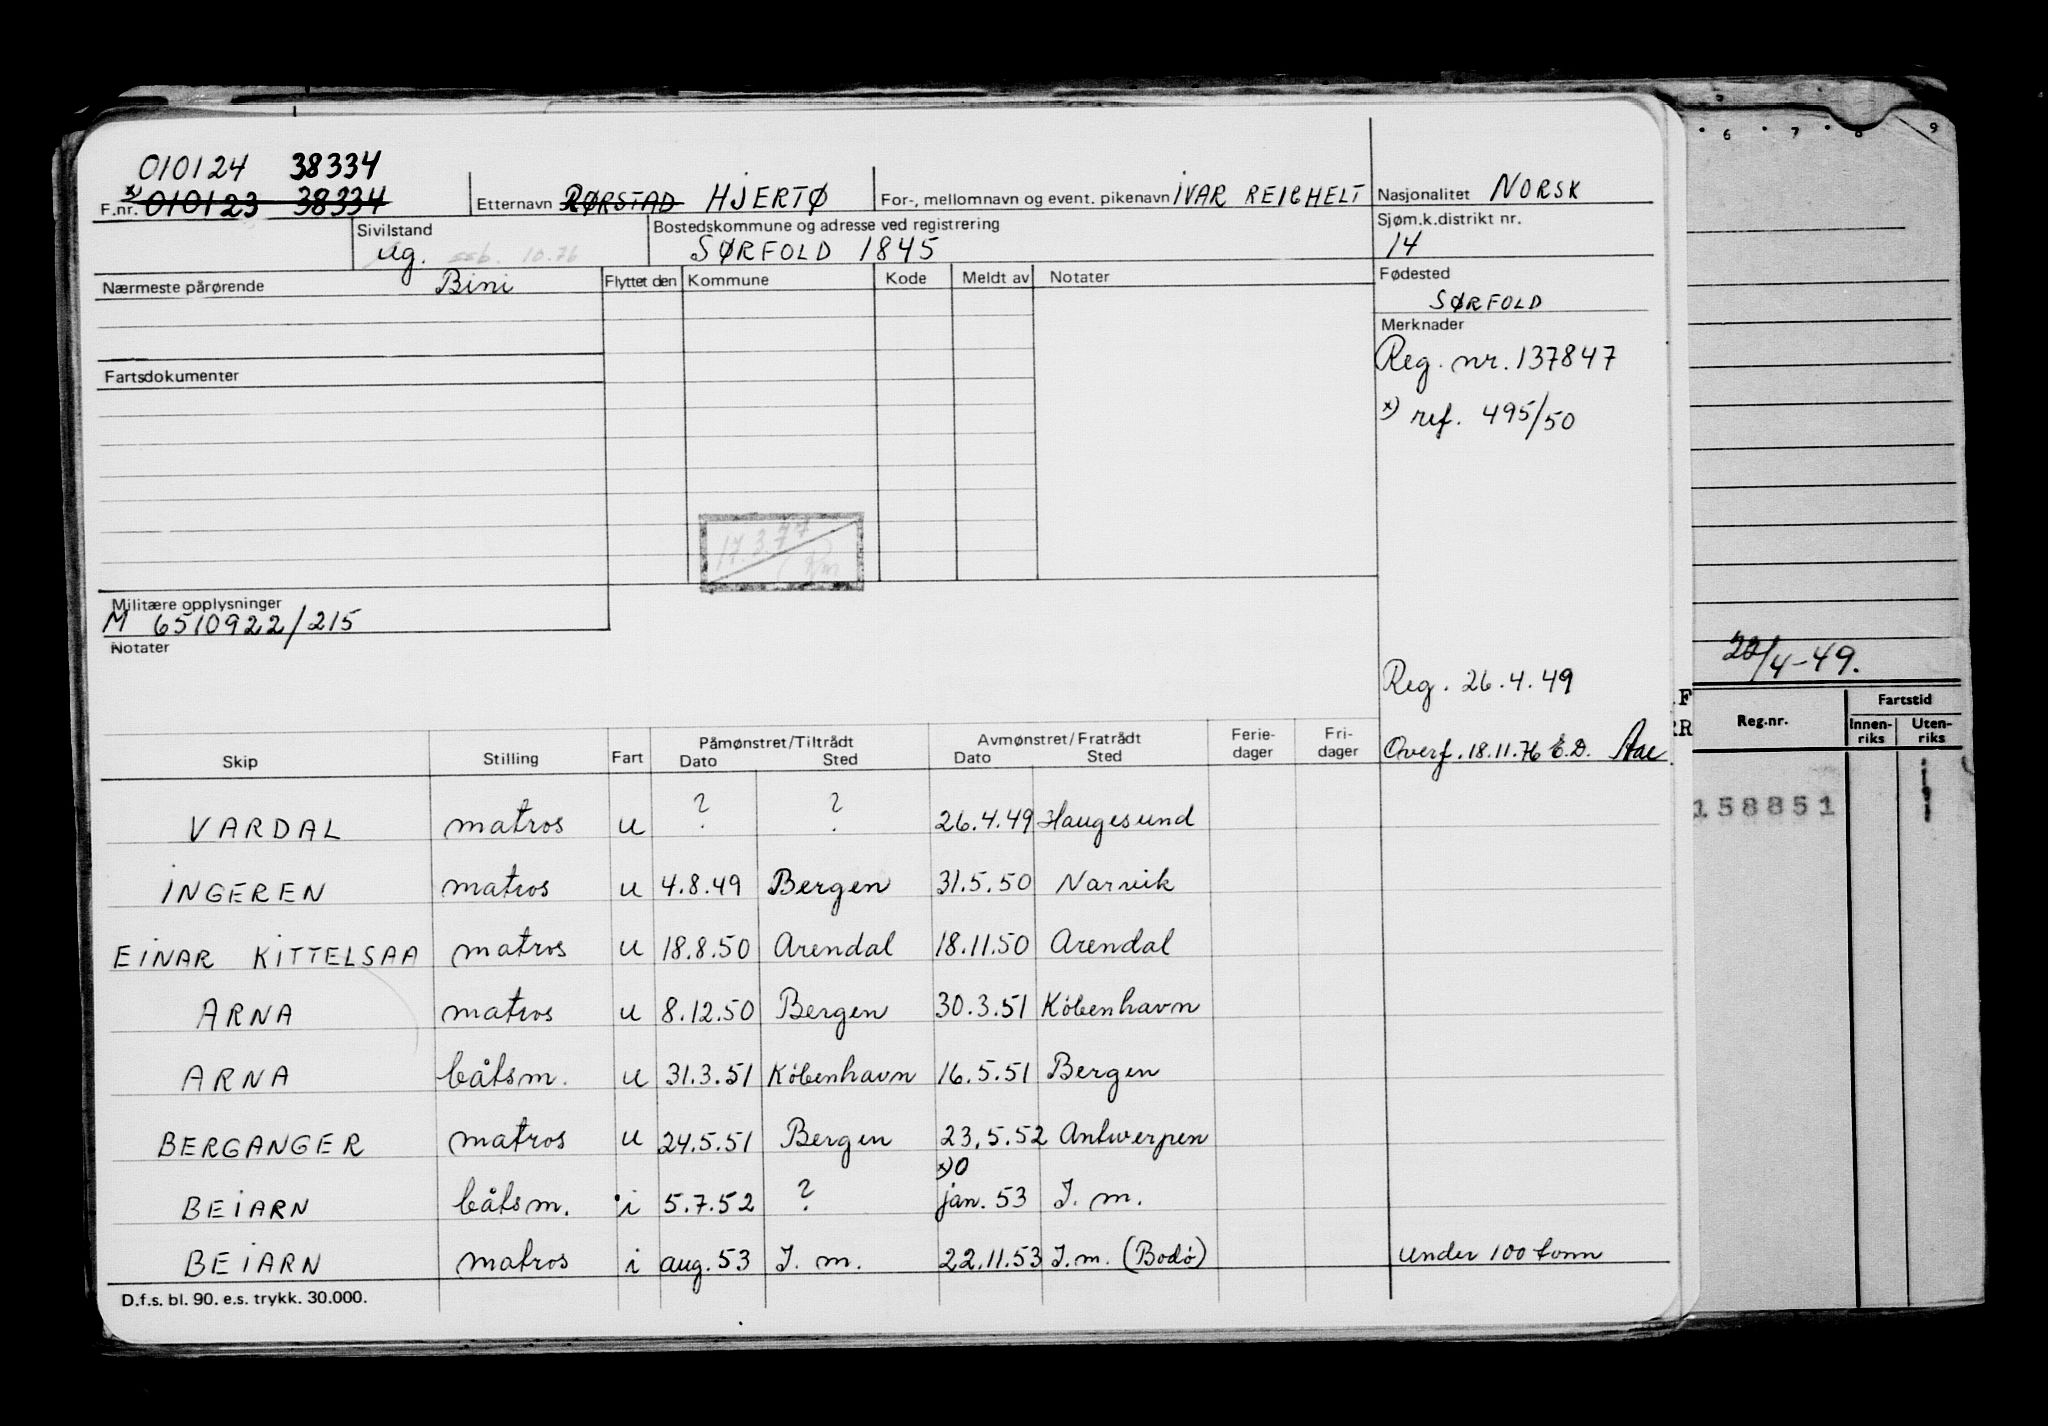 010124 38334
F.nr. x) 010123 38334
Etternavn RØRSTAD HJERTØ
For-, mellomnavn og event. pikenavn IVAR REICHELT
Nasjonalitet NORSK
Sivilstand
ug. ssb. 10.76
Bostedskommune og adresse ved registrering
SØRFOLD 1845
Sjøm.k.distrikt nr.
14
Nærmeste pårørende Bini
Flyttet den Kommune Kode Meldt av Notater
Fødested
SØRFOLD
Merknader
Reg. nr. 137847
x) ref. 495/50
Fartsdokumenter
17.3.77
Militære opplysninger
M 6510922/215
Notater
Reg. 26.4.49
Overf. 18.11.76 E.D. Aae
Skip Stilling Fart Påmønstret/Tiltrådt Avmønstret/Fratrådt Ferie- Fri-
Dato Sted Dato Sted dager dager
VARDAL matros u ? ? 26.4.49 Haugesund
INGEREN matros u 4.8.49 Bergen 31.5.50 Narvik
EINAR KITTELSAA matros u 18.8.50 Arendal 18.11.50 Arendal
ARNA matros u 8.12.50 Bergen 30.3.51 København
ARNA båtsm. u 31.3.51 København 16.5.51 Bergen
BERGANGER matros u 24.5.51 Bergen 23.5.52 Antwerpen
x) 0
BEIARN båtsm. i 5.7.52 ? jan. 53 I. m.
BEIARN matros i aug. 53 I. m. 22.11.53 I.m. (Bodø) under 100 tonn
D.f.s. bl. 90. e.s. trykk. 30.000.
6 7 8 9
22/4-49.
F
RR
Reg.nr. Fartstid
Innen- Uten-
riks riks
158851